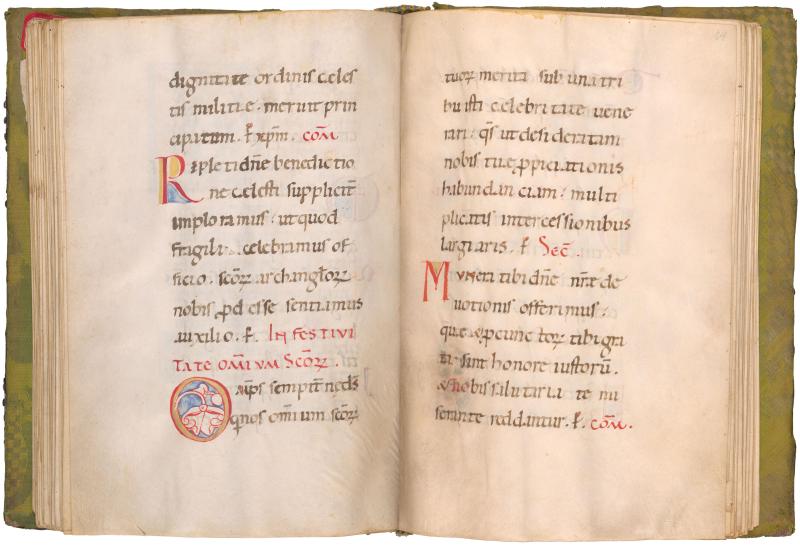 dignitate ordinis celes
tis militie · meruit prin
cipatum . ꝑ xp̄m . com̄
Repleti dn̄e benedictio
ne celesti supplicit̄
imploramus : ut quod
fragili celebramus of
ficio . sc̄oꝝ archangl̄oꝝ
nobis ꝓdesse sentiamus
auxilio . ꝑ . In festivi
tate om̄ium Sc̄oꝝ .
Om̄ps sempit̄ne ds̄
qui nos om̄ium sc̄oꝝ
64
tuoꝝ merita sub una tri
buisti celebritate vene
rari : qs̄ ut desideratam
nobis tue ꝓpiciationis
habundanciam : multi
plicatis intercessionibus
largiaris . ꝑ Sec̄ .
Munera tibi dn̄e nr̄e de
uotionis offerimus :
que & ꝓ cunctoꝝ tibi gra
ta sint honore iustoꝝ .
& nobis salutaria te mi
serante reddantur . ꝑ . com̄ .